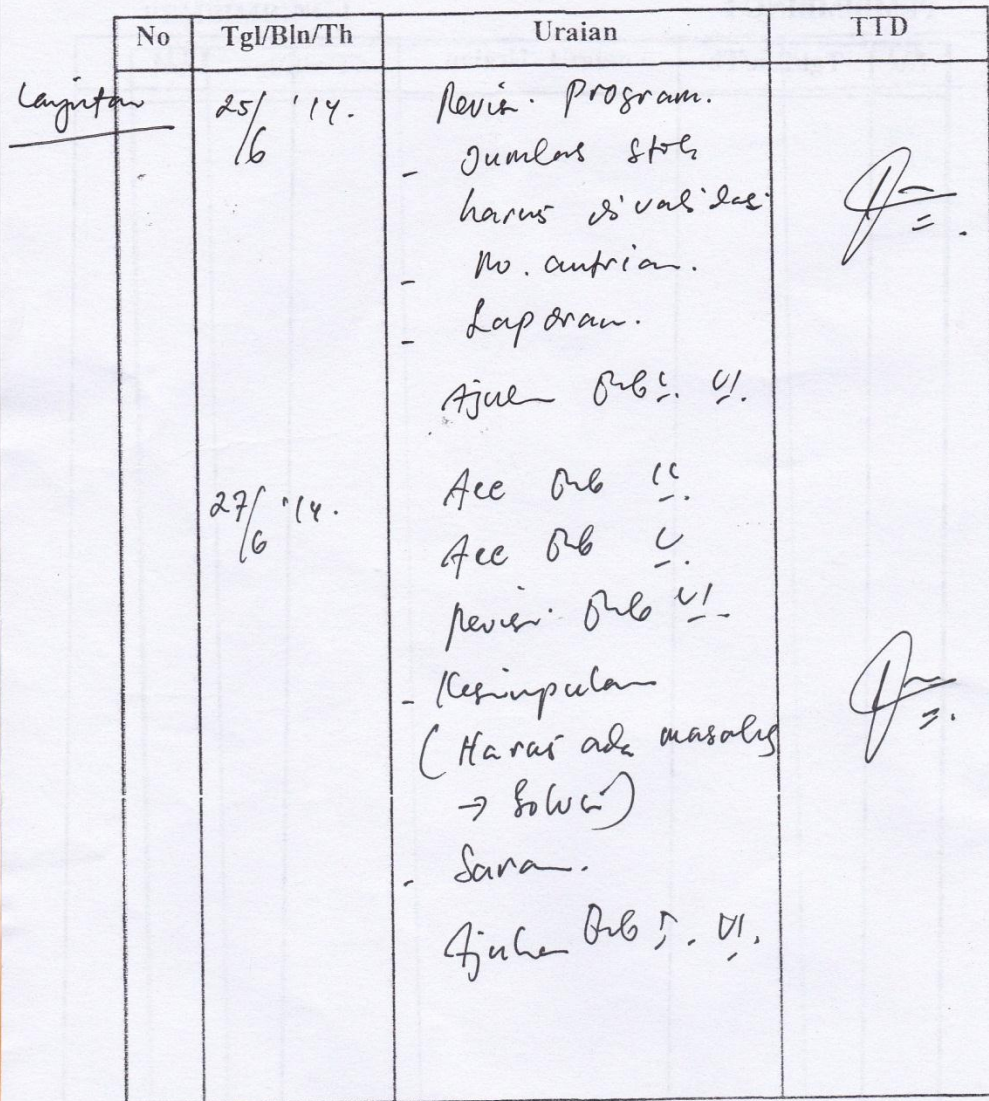 No Tgl/Bln/Th Uraian TTD
Lanjutan 25/6 '14. Revisi Program.
- Jumlah stok
harus divalidasi
- No. antrian.
- Laporan.
Ajukan Bab VI.
27/6 '14. Acc Bab
Acc Bab V.
Revisi Bab VI.
- Kesimpulan
(Harus ada masalah
→ Solusi)
- Saran.
Ajukan Bab I. VI.